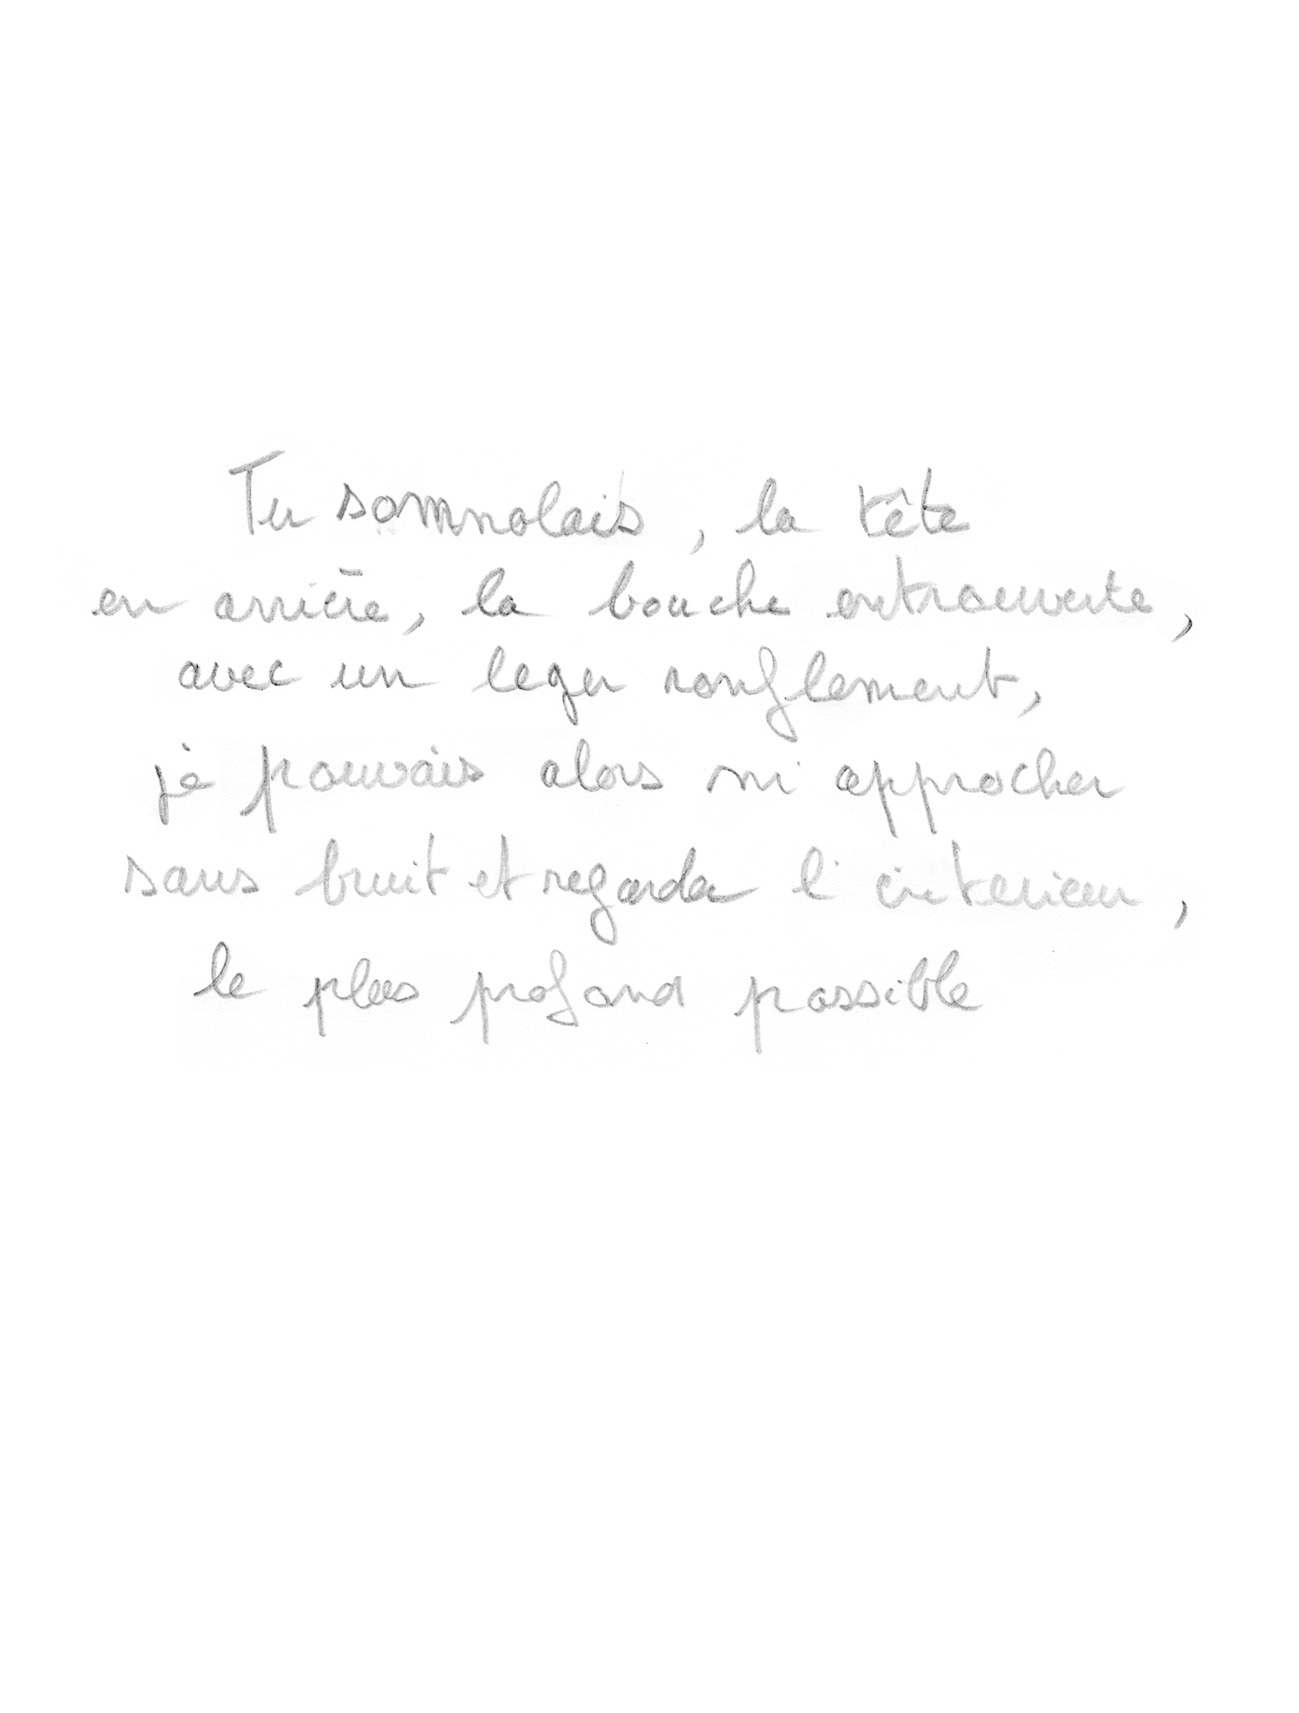 Tu somnolais, la tête
en arrière, la bouche entrouverte,
avec un leger ronflement,
je pouvais alors m'approcher
sans bruit et regarder l'interieur,
le plus profond possible